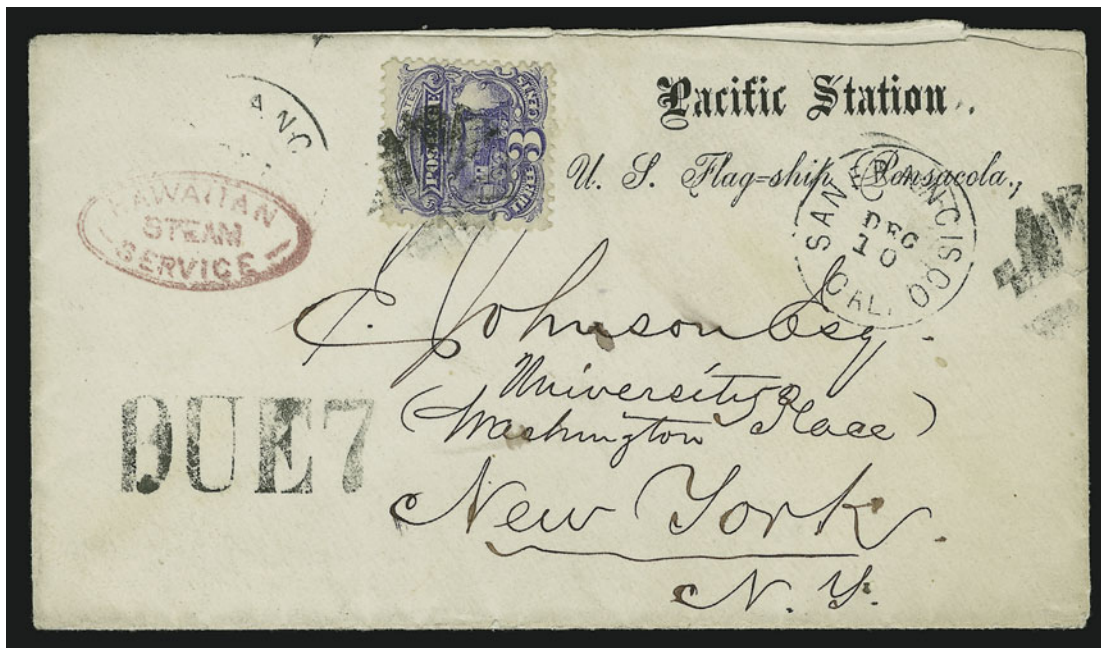 Pacific Station.
U. S. Flag=ship Pensacola,
SAN FRANCISCO
DEC
10
CAL.
ANC
HAWAIIAN
STEAM
SERVICE
POSTAGE
3
DUE 7
E. Johnson Esq.
University Place
(Washington Place)
New York.
N. Y.